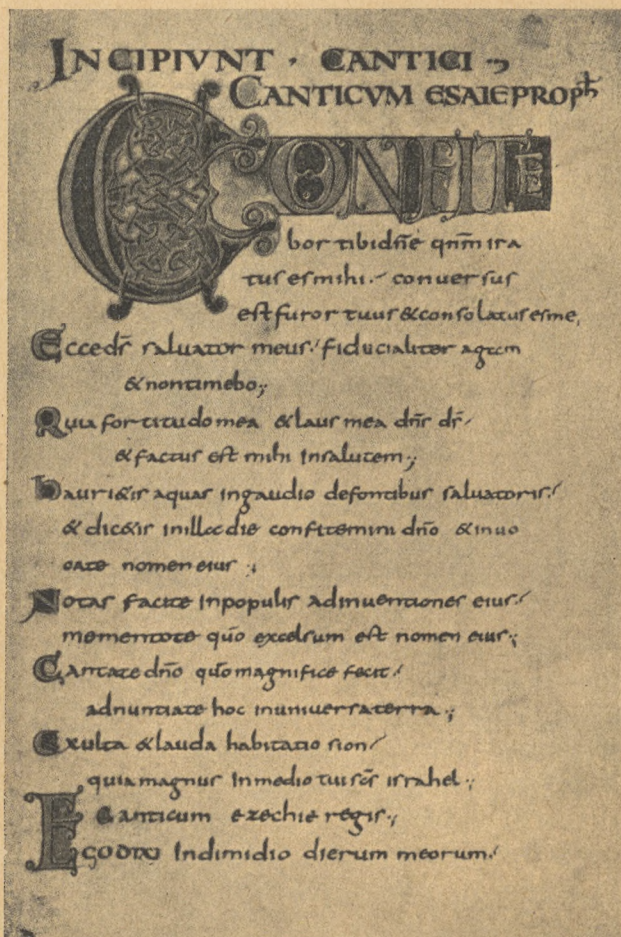 INCIPIVNT · CANTICI ·,
CANTICVM ESAIE PROPH
CONFITE
bor tibi dn̄e qn̄m ira
tus es mihi ⁊ conversus
est furor tuus & consolatus es me,
Ecce ds̄ salvator meus ⁊ fiducialiter agam
& non timebo;
Quia fortitudo mea & laus mea dn̄s ds̄ ⁊
& factus est mihi in salutem;
hauri&is aquas in gaudio de fontibus salvatoris ⁊
& dic&is in illa die confitemini dn̄o & invo
cate nomen eius ;
Notas facite in populis adinventiones eius ⁊
mementote qūo excelsum est nomen eius;
Cantate dn̄o qūo magnifice fecit ⁊
adnuntiate hoc in universa terra ;
Exulta & lauda habitatio sion ⁊
quia magnus in medio tui sc̄s israhel ;
Canticum ezechie regis ;
EGO DIXI In dimidio dierum meorum ⁊